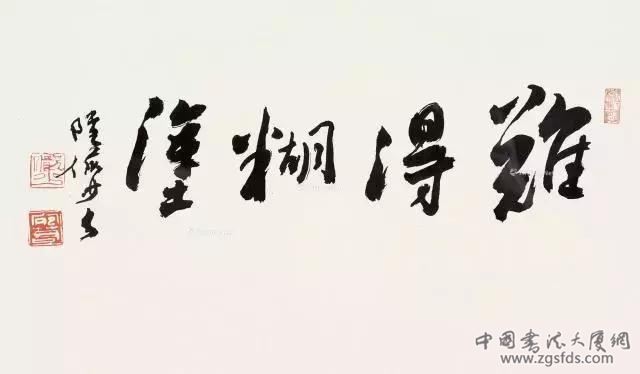 難得糊塗
陸儼少
中國書法大廈網
www.zgsfds.com